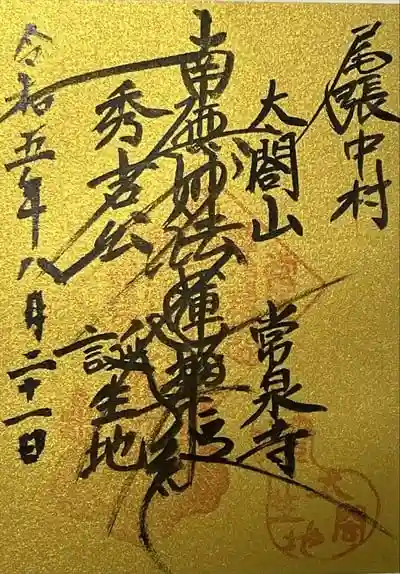 尾張中村
太閤山 常泉寺
南無妙法蓮華経
秀吉公 誕生地
令和五年八月二十一日